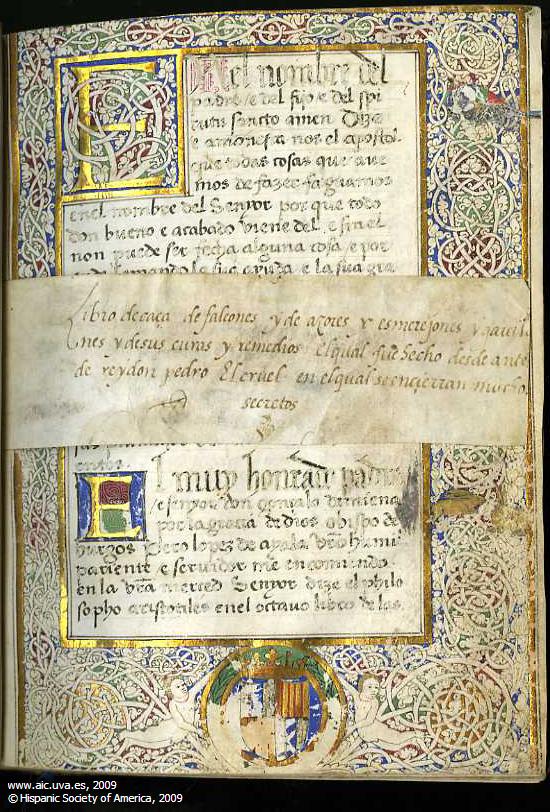 En el nombre del
padre e del fijo e del spi
ritu sancto amen Dize
e amonesta nos el apostol
que todas cosas que aue
mos de fazer fagamos
en el nombre del Senyor por que todo
don bueno e acabado viene del e sin el
non puede ser fecha alguna cosa e por
ende llamando la su ayuda e la sua gra
Libro de caça de falcones y de açores y esmerejones y gauila
nes y de sus curas y remedios El qual fue hecho desde ante
de rey don pedro El cruel en el qual se encierran muchos
secretos
El muy honrado padre
e senyor don gonçalo de miena
por la gracia de dios obispo de
burgos Pero lopez de ayala vro humil
pariente e seruidor me encomiendo
en la vra merced Senyor dize el philo
sopho aristotiles en el octauo libro de las
www.aic.uva.es, 2009
© Hispanic Society of America, 2009